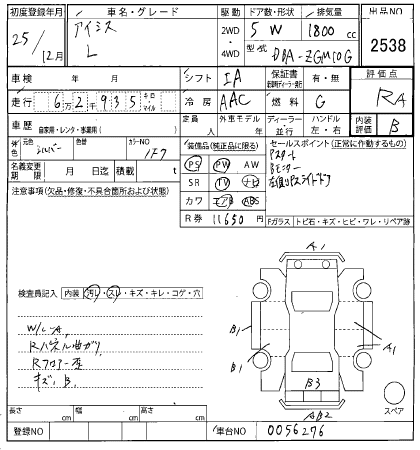 初度登録年月 車名・グレード 駆動 ドア数・形状 排気量 出品NO
25/12月 アイシス L 2WD 4WD 5 W 1800cc 2538
型式 DBA-ZGM10G
車検 年 月 シフト IA 保証書 有・無 評価点
走行 6万2千935 キロ・マイル 冷房 AAC 燃料 G RA
車歴 自家用・レンタ・事業用( ) 定員 人 外車モデル 年 ディーラー 並行 ハンドル 左・右 内装評価 B
外色 元色 シルバー 色替 カラーNO 1F7
名義変更期限 月 日迄 積載 t
装備品(純正品に限る) セールスポイント(正常に動作するもの)
PS PW AW
SR TV ナビ
カワ エアB ABS
R券 11650円
Pスタート
Bモニター
左側Pスライドドア
注意事項(欠品・修復・不具合箇所および状態)
Fガラス トビ石・キズ・ヒビ・ワレ・リペア跡
検査員記入 内装 汚レ・スレ・キズ・キレ・コゲ・穴
W/L-A
Rパネル曲ガリ
Rフロアー歪
キズ、B
A1
B1
B1
A1
B3
AB2
スペア
長さ cm 幅 cm 高さ cm
登録NO 車台NO 0056276